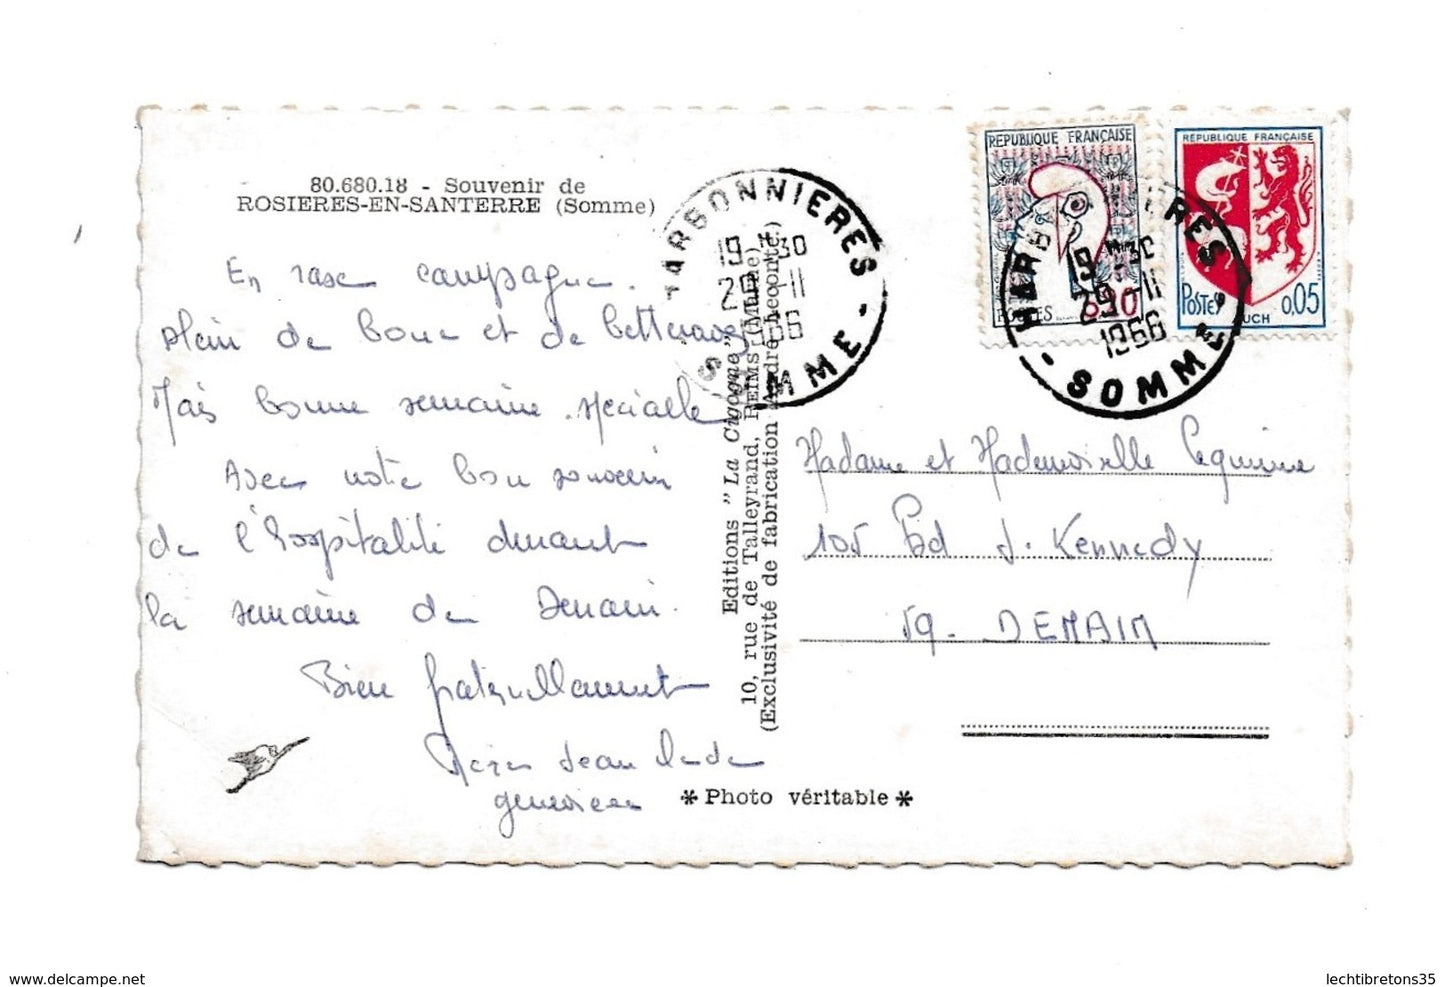 80.680.18 - Souvenir de
ROSIERES-EN-SANTERRE (Somme)
En rase campagne.
plein de boue et de betteraves
Mais bonne semaine spéciale
Avec notre bon souvenir
de l'hospitalité durant
la semaine de Denain.
Bien fraternellement
Jean
geneviève
Editions "La Cigogne"
10, rue de Talleyrand, REIMS (Marne)
(Exclusivité de fabrication André Lecomte)
* Photo véritable *
HARBONNIERES
19H30
29-11
1966
SOMME
REPUBLIQUE FRANÇAISE
POSTES 0,30
REPUBLIQUE FRANÇAISE
POSTES 0,05
AUCH
HARBONNIERES
19H30
29-11
1966
SOMME
Madame et Mademoiselle
105 Bd J. Kennedy
59. DENAIN
www.delcampe.net
lechtibretons35